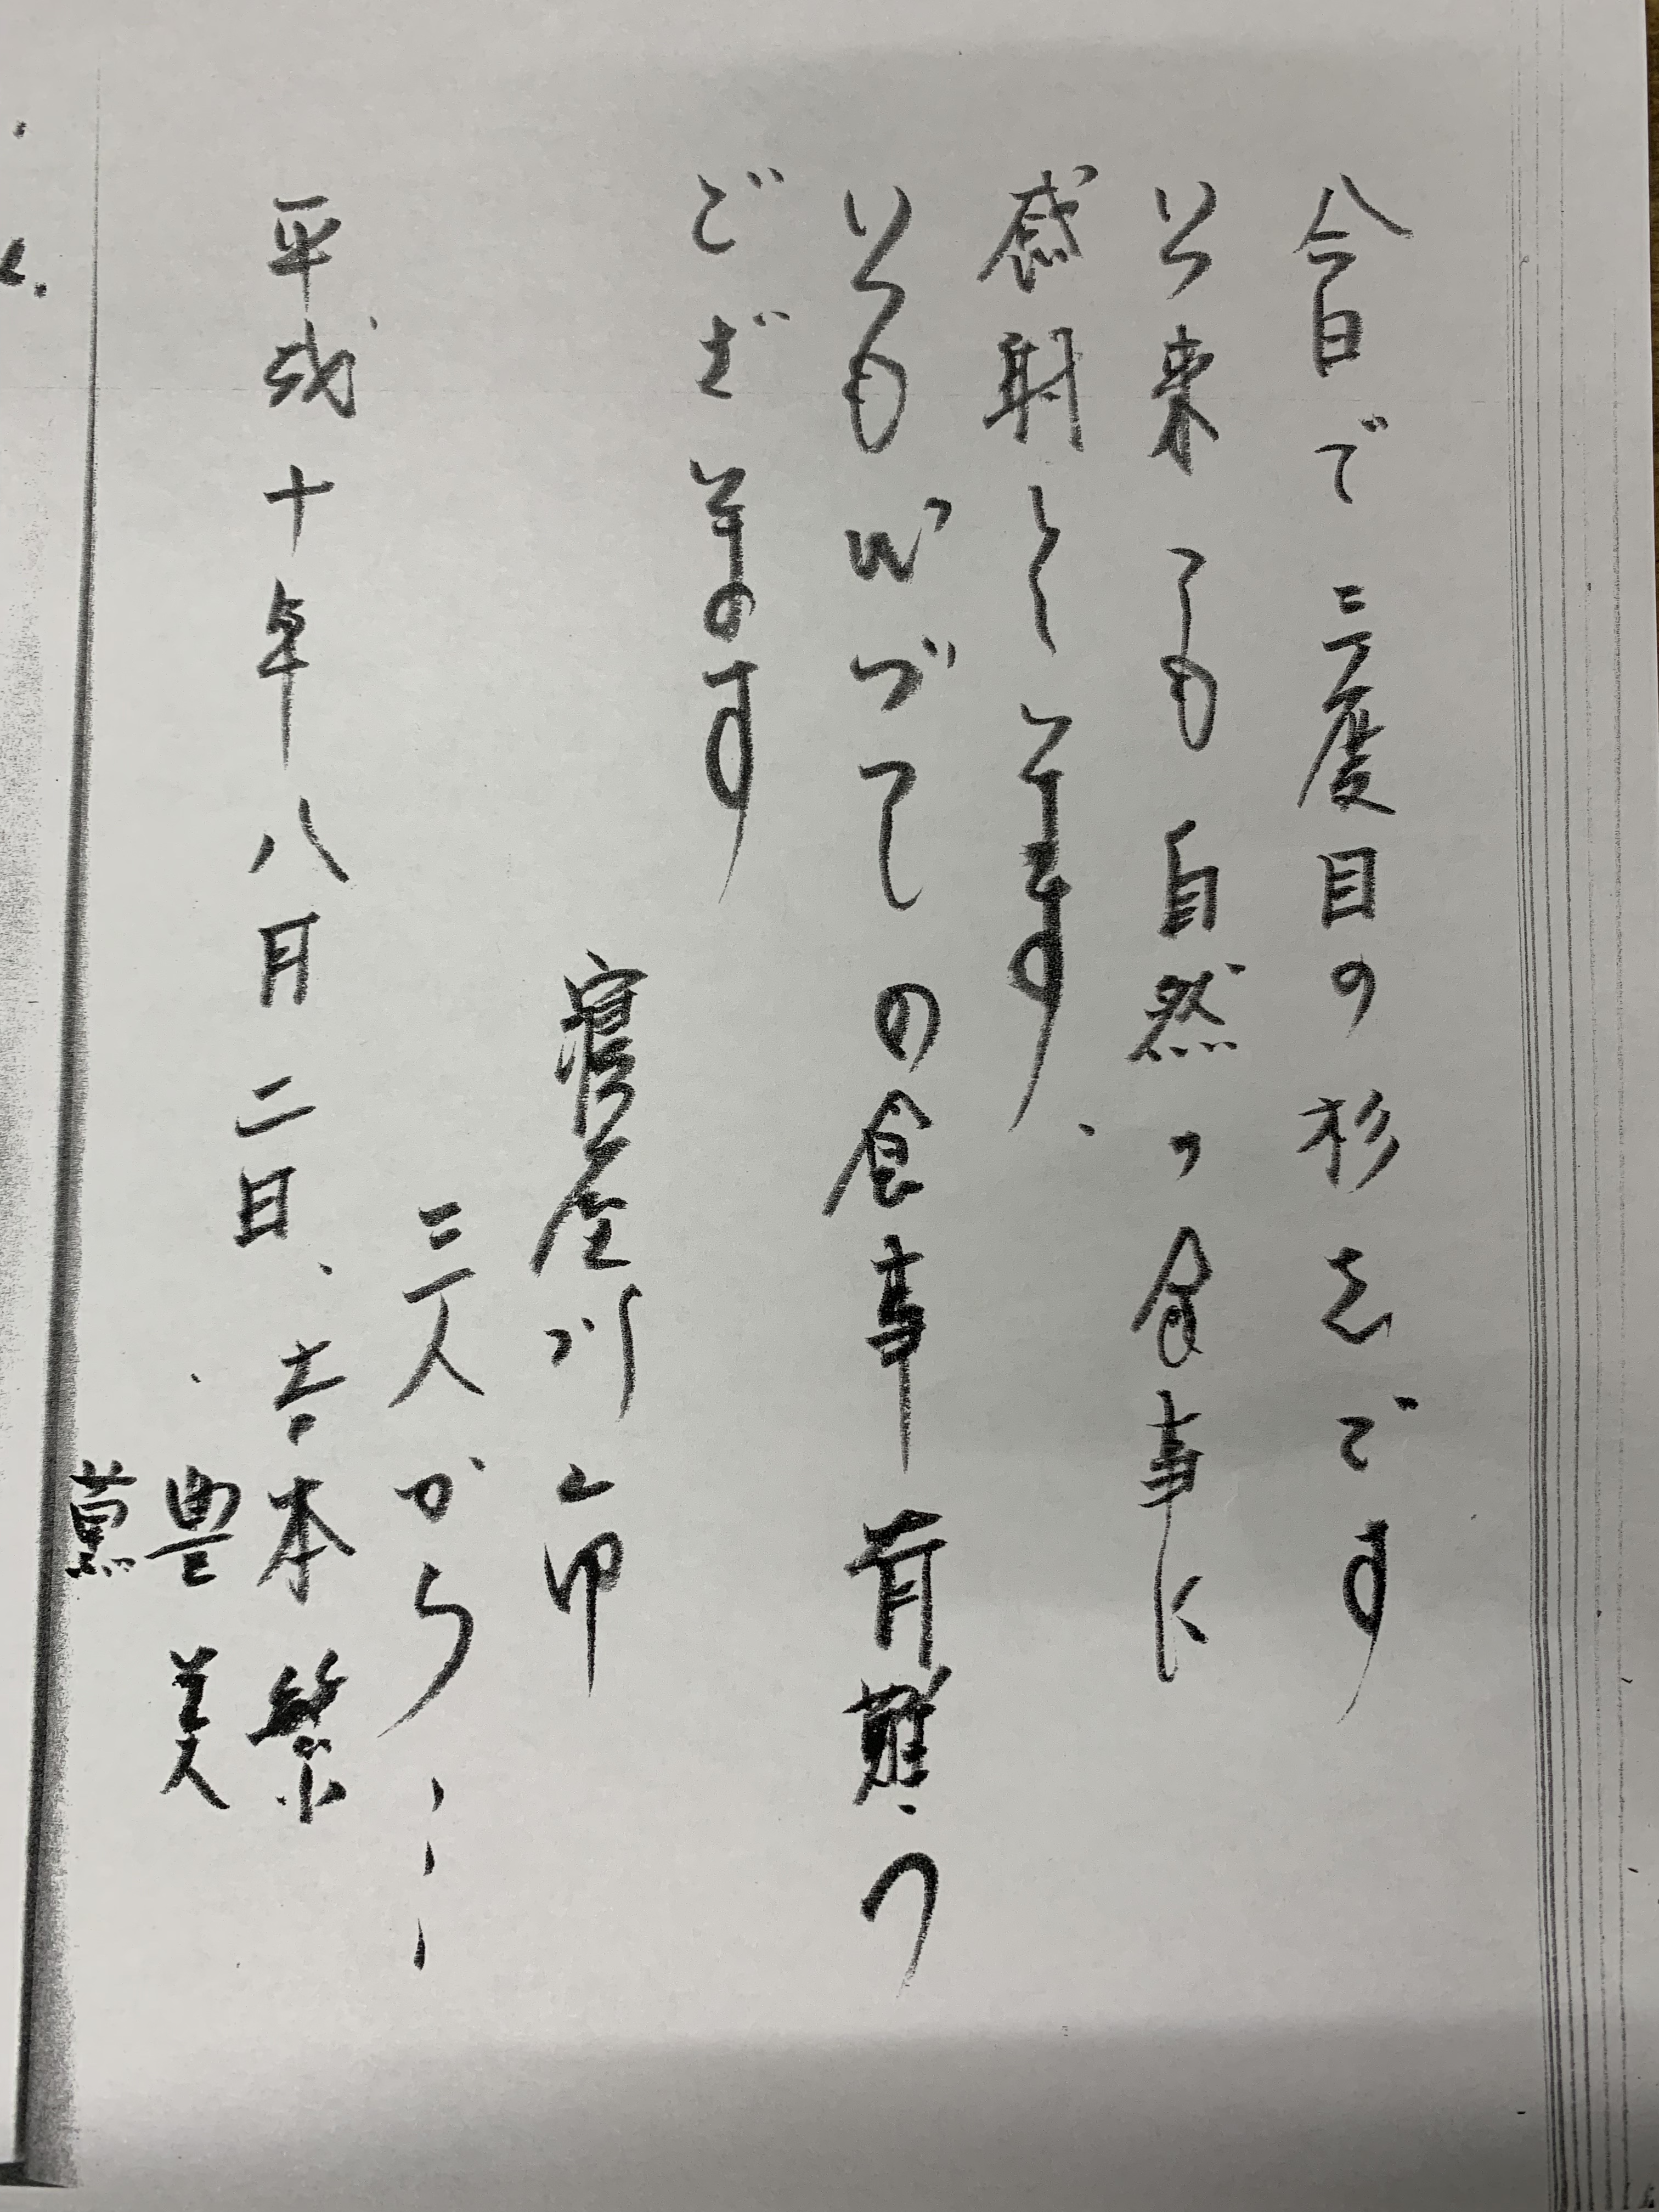 今日で三度目の杉をです
いつ来ても自然の食事に
感射しております
いつも心づくしの食事有難う
ございます
寝屋川市
三人から…
平成十年八月二日、吉本繁
豊美
薫